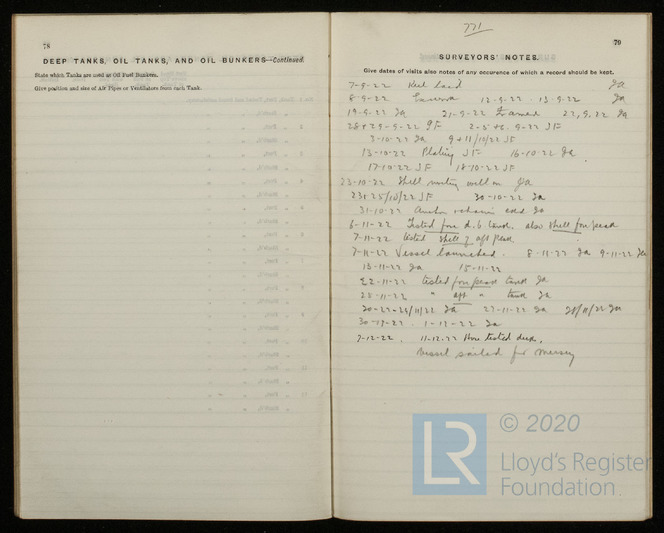 78
DEEP TANKS, OIL TANKS, AND OIL BUNKERS—Continued.
State which Tanks are used as Oil Fuel Bunkers.
Give position and size of Air Pipes or Ventilators from each Tank.
771
79
SURVEYORS' NOTES.
Give dates of visits also notes of any occurence of which a record should be kept.
7-9-22 Keel laid Ja
8-9-22 12-9-22 13-9-22 Ja
19-9-22 Ja 21-9-22 Framed 27,9,22 Ja
28+29-9-22 JF JF
3-10-22 Ja 9+11/10/22 JF
13-10-22 Plating JF 16-10-22 Ja
17-10-22 JF 18-10-22 JF
23-10-22 Shell riveting well on Ja
23+25/10/22 JF 30-10-22 Ja
31-10-22 Ja
6-11-22 Tested fore d.b. tank. also shell forepeak
7-11-22 tested shell of aft peak
7-11-22 Vessel launched. 8-11-22 Ja 9-11-22 Ja
13-11-22 Ja 15-11-22
22-11-22 tested fore peak tank Ja
25-11-22 " aft " tank Ja
27-11-22 Ja 28/11/22 Ja
1-12-22 Ja
7-12-22. 11-12-22 Hose tested deck.
Vessel sailed for Mersey
LR
© 2020
Lloyd's Register
Foundation